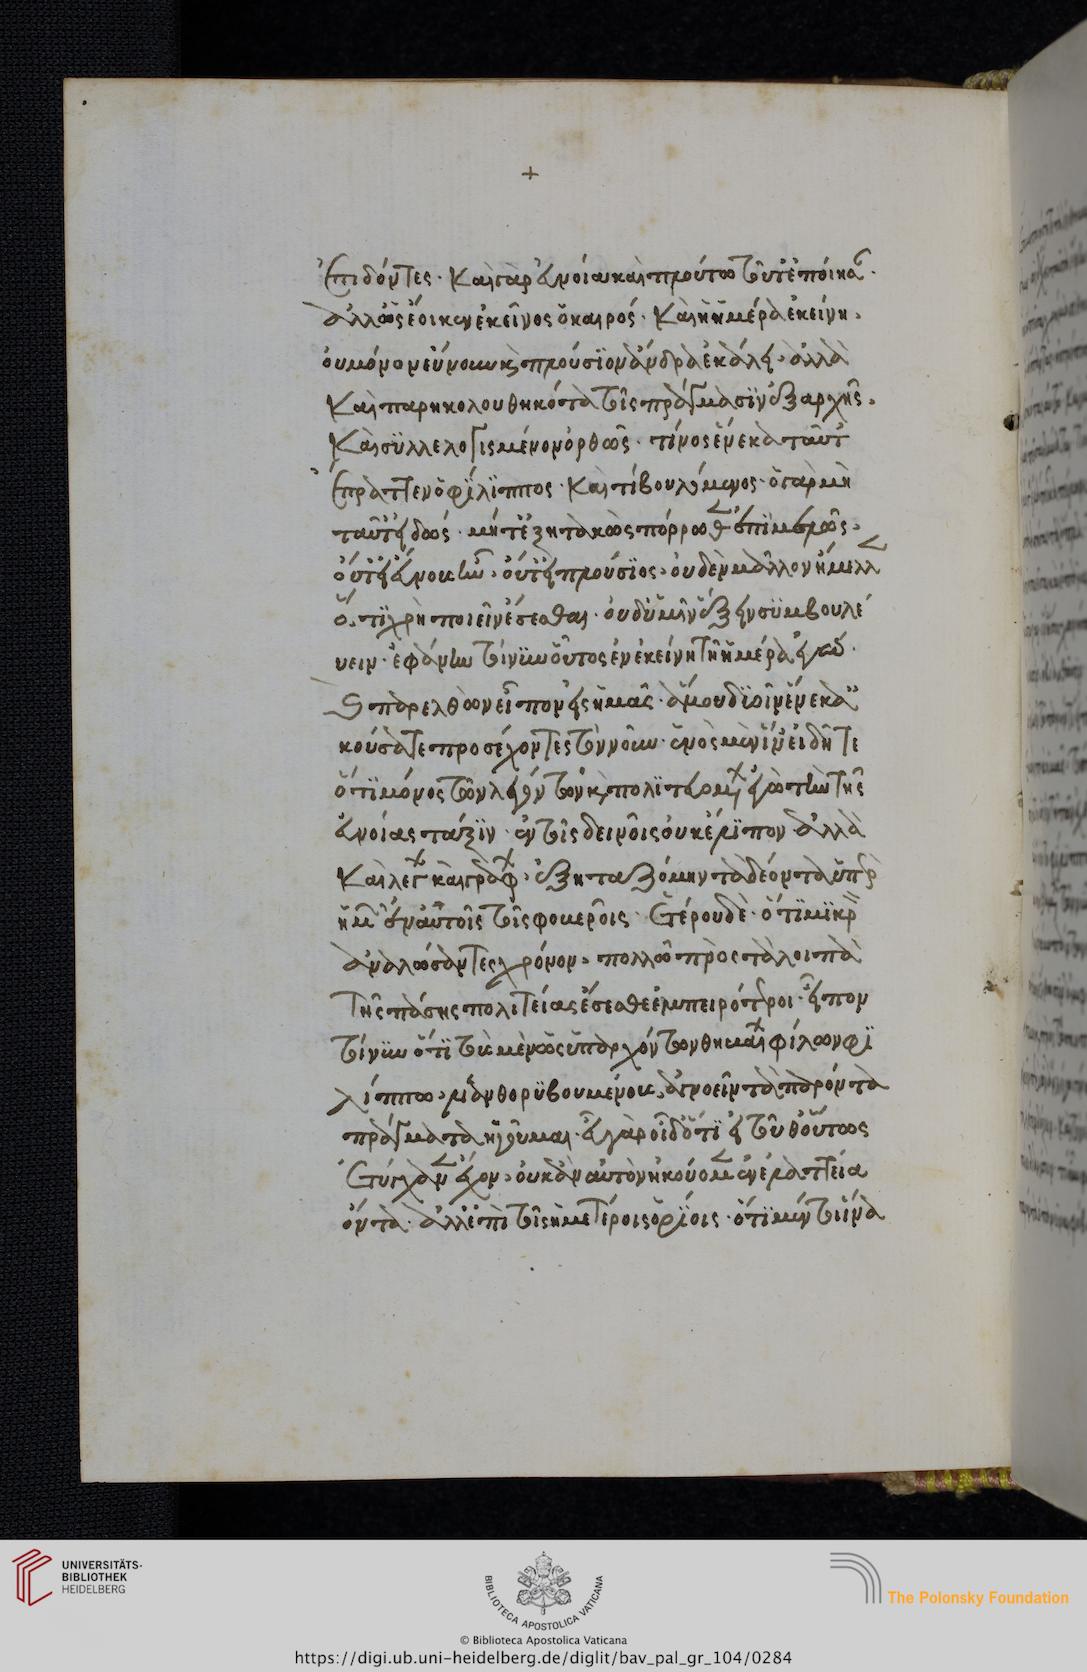 +
ἐπιδόντες· καὶ γὰρ εὐνοίᾳ καὶ πλούτῳ τοῦτ' ἐποίησαν·
ἀλλ' ὡς ἔοικεν ἐκεῖνος ὁ καιρός· καὶ ἡ ἡμέρα ἐκείνη·
οὐ μόνον εὔνουν καὶ πλούσιον ἄνδρα ἐκάλει· ἀλλὰ
καὶ παρηκολουθηκότα τοῖς πράγμασιν ἐξ ἀρχῆς·
καὶ συλλελογισμένον ὀρθῶς· τίνος ἕνεκα ταῦτ'
ἔπραττεν ὁ φίλιππος· καὶ τί βουλόμενος· ὁ γὰρ μὴ
ταῦτ' εἰδώς· μήτ' ἐξητακὼς πόρρωθεν ἐπιμελῶς·
οὔτ' εἰ εὔνους ἦν· οὔτ' εἰ πλούσιος· οὐδὲν μᾶλλον ἤμελλ
ὅ, τι χρὴ ποιεῖν εἴσεσθαι· οὐδ' ὑμῖν ἕξειν συμβουλεύ
ειν· ἐφάνην τοίνυν οὗτος ἐν ἐκείνῃ τῇ ἡμέρᾳ ἐγώ·
καὶ παρελθὼν εἶπον εἰς ἡμᾶς· ἅ μου δυοῖν ἕνεκα
κούσατε προσέχοντες τὸν νοῦν· ἑνὸς μὲν ἵν' εἰδῆτε
ὅτι μόνος τῶν λεγόντων καὶ πολιτευομένων ἐγὼ τὴν τῆς
εὐνοίας τάξιν· ἐν τοῖς δεινοῖς οὐκ ἔλιπον ἀλλὰ
καὶ λέγων καὶ γράφων· ἐξηταζόμην τὰ δέοντα ὑπὲρ
ἡμῶν ἐν αὐτοῖς τοῖς φοβεροῖς· ἑτέρου δὲ· ὅτι μικρὸν
ἀναλώσαντες χρόνον· πολλῷ πρὸς τὰ λοιπὰ
τῆς πάσης πολιτείας ἔσεσθε ἐμπειρότεροι· εἶπον
τοίνυν ὅτι τοὺς μὲν ὡς ὑπαρχόντων θηβαίων φίλων φι
λίππῳ· λίαν θορυβουμένους· ἀγνοεῖν τὰ παρόντα
πράγματα ἡγοῦμαι· εὖ γὰρ οἶδ' ὅτι εἰ τοῦθ' οὕτως
ἐτύγχανεν ἔχον· οὐκ ἂν αὐτὸν ἠκούομεν ἐν ἐλατείᾳ
ὄντα· ἀλλ' ἐπὶ τοῖς ἡμετέροις ὁρίοις· ὅτι μέντοι ἵνα
UNIVERSITÄTS-
BIBLIOTHEK
HEIDELBERG
BIBLIOTECA APOSTOLICA VATICANA
The Polonsky Foundation
© Biblioteca Apostolica Vaticana
https://digi.ub.uni-heidelberg.de/diglit/bav_pal_gr_104/0284